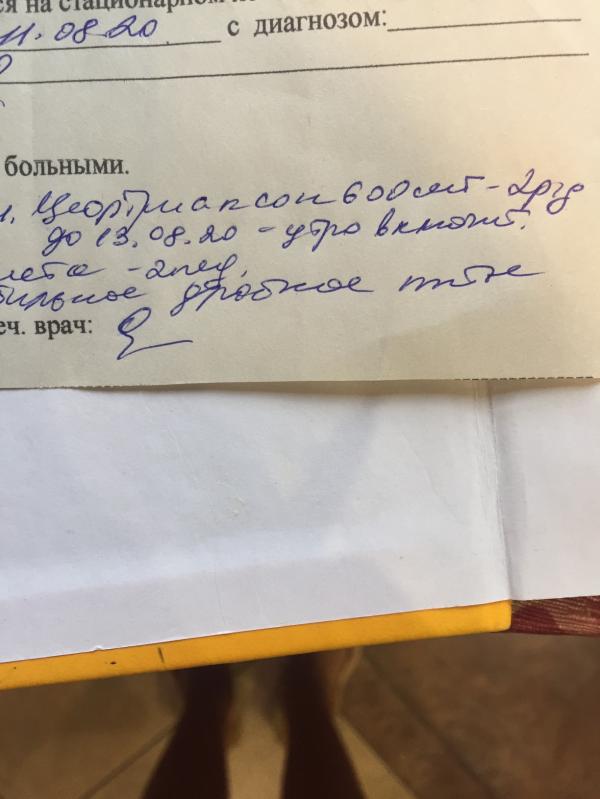 ся на стационарном
11.08.20 с диагнозом:
больными.
Цефтриаксон 600 мг - 2р/д
до 13.08.20 - утро включит.
диета - 2нед,
обильное дробное питье
еч. врач: